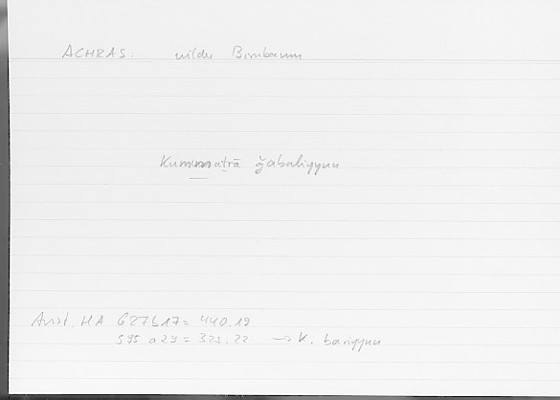 ACHRAS: wilder Birnbaum
Kummaṯrā ǧabaliyyun
Arist. HA 627b17 = 440.19
595 a29 = 329.22 → K. barriyyun